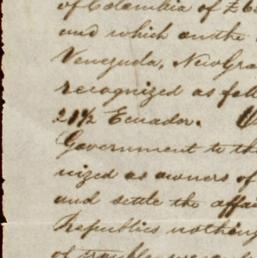 of Colombia of £6
and which on the
Venezuela, New Gra
recognized as foll
21½ Ecuador.
Government to th
nized as owners of
and settle the affai
Republics nothing
of